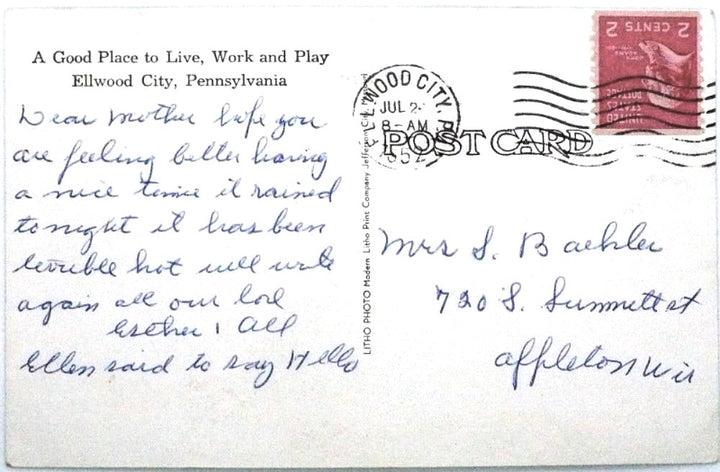 A Good Place to Live, Work and Play
Ellwood City, Pennsylvania
Dear Mother hope you
are feeling better having
a nice time it rained
tonight it has been
terrible hot will write
again all our love
Esther & All
Ellen said to say Hello
LITHO PHOTO Modern Litho Print Company Jefferson City, Missouri
WOOD CITY, PA
JUL 2
8-AM
1952
POST CARD
2 CENTS 2
JOHN ADAMS
UNITED
STATES
POSTAGE
Mrs S. Baehler
720 S. Summett st
Appleton Wis